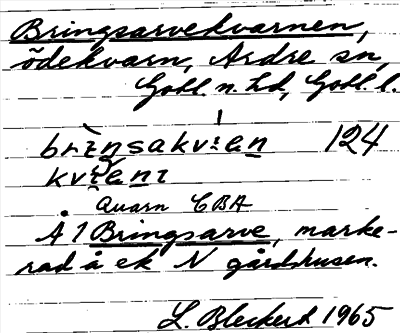 Bringsarvekvarnen,
ödekvarn, Ardre sn,
Gotl. n. hd, Gotl. l.
124
Qvarn EBA
Å 1 Bringsarve, marke-
rad å ek N gårdshusen.
L. Bleckert 1965